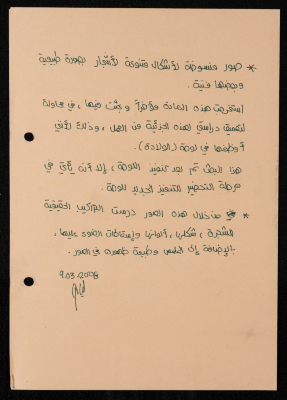 * صور منسوخة لأشكال متنوعة للأشجار بصورة طبيعية
وبعضها فنية .
استخرجت هذه المادة وقرأت وبحثت فيها ، في محاولة
لتعميق دراستي لهذه الجزئية من العمل ، وذلك لأنني
أوظفها في لوحة (الولادة) .
هذا البحث تم بعد تنفيذ اللوحة ، إلا أنه يأتي في
مرحلة التحضير للتنفيذ الجديد للوحة .
* من خلال هذه الصور درست التراكيب الحقيقية
للشجرة ، شكلها ، ألوانها وإسقاطات الضوء عليها ،
بالإضافة إلى الملمس وطبيعة ظهوره في الصور .
9.03.2008